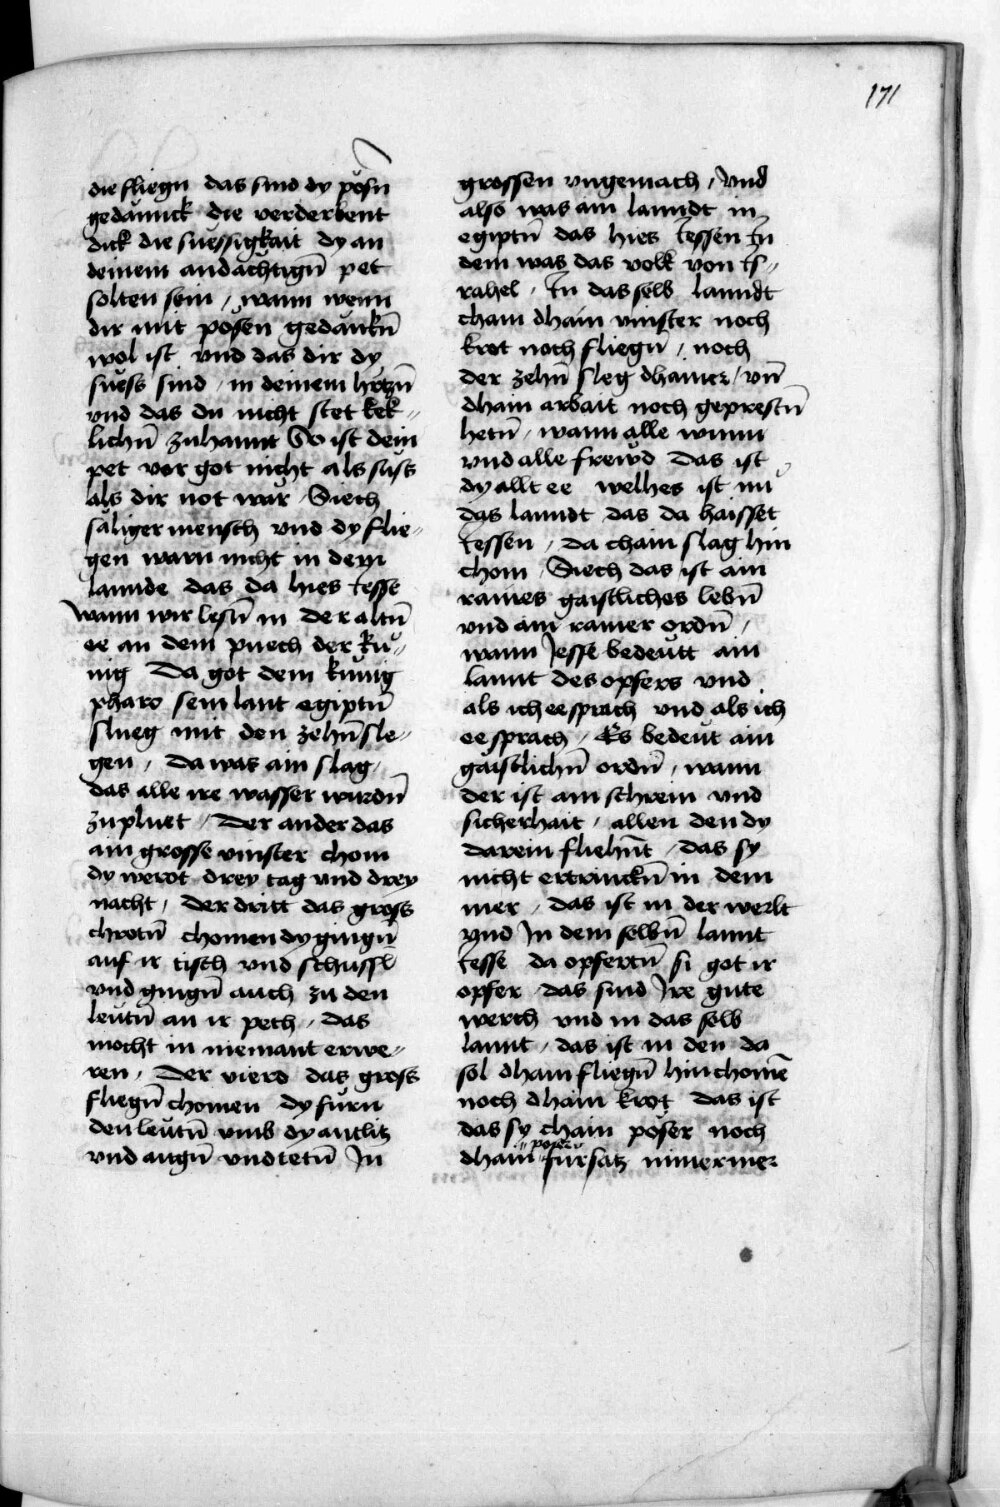 171
die fliegn das sind dy pösn̄
gedännck die verderbent
dick die suessigkait dy an
deinem andächtign̄ pet
solten sein / wann wenn
dir mit pösen gedänckn̄
wol ist vnd das dir dy
suess sind / in deinem hertzn̄
vnd das du nicht stet kek„
lichn̄ zuhannt So ist dein
pet vor got nicht als süss
als dir not wär / Siech
säliger mensch vnd dy flie„
gen warn nicht in dem
lannde das da hies Jesse
wann wir lesn̄ in der altn̄
ee an dem puech der kü„
nig Da got dem künig
pharo sein lant egiptn̄
slueg mit den zehn̄ sle„
gen / Da was ain slag /
das alle ire wasser wurdn̄
zu pluet / Der ander das
ain grosse vinster chom
dy werot drey tag vnd drey
nacht / Der dritt das gross
chrotn̄ chomen dy gingn̄
auf ir tisch vnd schüssl̄
vnd gingn̄ auch zu den
leütn̄ an ir pech / Das
mocht in niemant erwe„
ren / Der vierd das gross
fliegn̄ chomen dy furn
den leütn̄ vmb dy antlitz
vnd augn̄ vnd tetn̄ In
grossen vngemach / Vnd
also was ain lanndt in
egiptn̄ das hies Jessen In
dem was das volk von Js„
rahel / In das selb lanndt
cham dhain vinster noch
krot noch fliegn̄ / noch
der zehn̄ sleg dhainer / vn̄
dhain arbait noch geprestn̄
hetn̄ / wann alle wunn
vnd alle frewd Das ist
dy allt ee welhes ist nü
das lanndt das da haisset
Jessen / Da chain slag hin
chom / Siech das ist ain
raines gaistliches lebn̄
vnd ain rainer ordn̄ /
wann Jesse bedeütt ain
lannt des opfers vnd
als ich ee sprach vnd als ich
ee sprach / Es bedeüt ain
gaistlichn̄ ordn̄ / wann
der ist ain schrein vnd
sicherhait / allen den dy
darein fliehn̄t / das sy
nicht ertrinckn̄ in dem
mer / das ist in der werlt
vnd In dem selbn̄ lannt
Jesse da opfertn̄ si got ir
opfer / das sind Ire gute
werch vnd in das selb
lannt / das ist in den da
sol dhain fliegn̄ hin chomē
noch dhain krot Das ist
das sy chain pöser noch
dhain „ pöser fürsatz nimermer